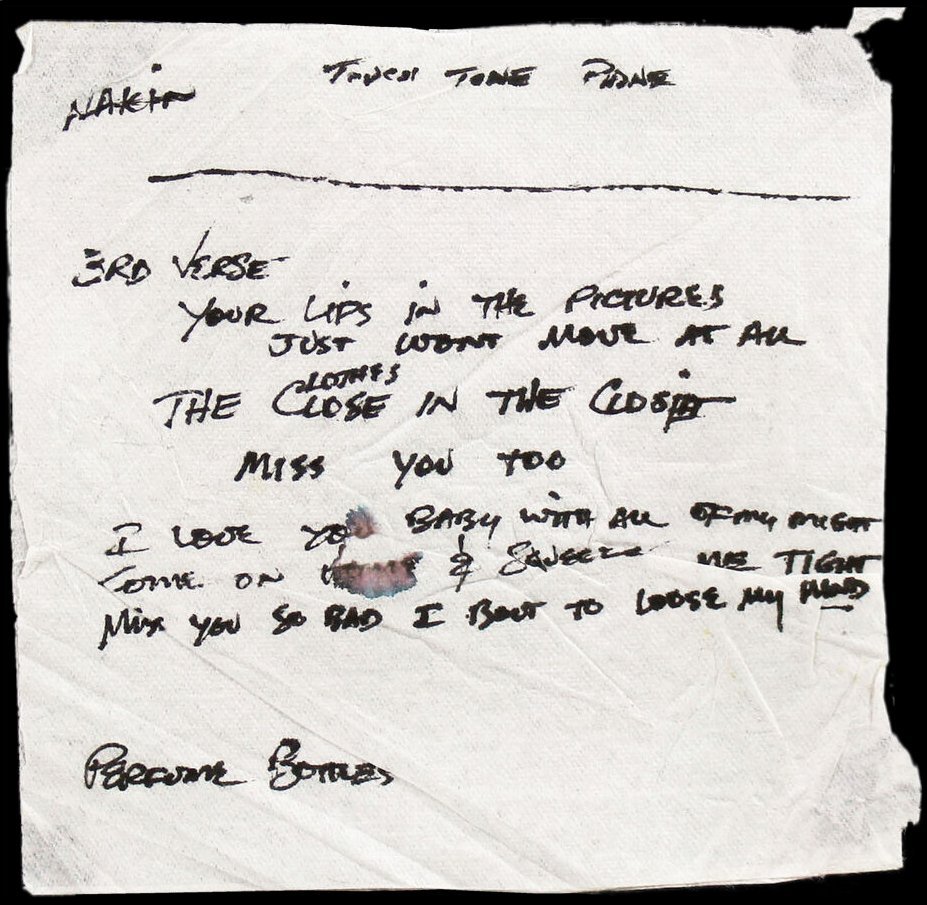 TOUCH TONE PHONE
3RD VERSE
YOUR LIPS IN THE PICTURES
JUST WONT MOVE AT ALL
CLOTHES
THE CLOSE IN THE CLOSIT
MISS YOU TOO
I LOVE YOU BABY WITH ALL OF MY MIGHT
COME ON HOME & SQUEEZE ME TIGHT
MISS YOU SO BAD I BOUT TO LOOSE MY MIND
PERFUME BOTTLES